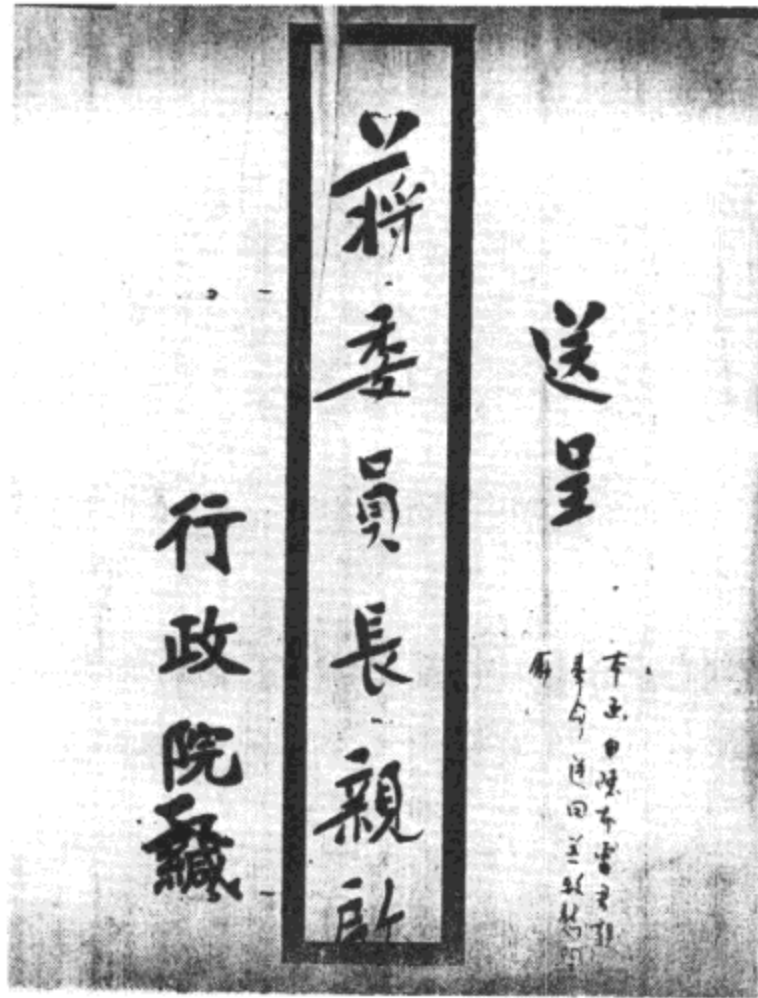 送呈
本函由陳布雷君親
奉命送回並致慰問
蔣委員長親啟
行政院緘